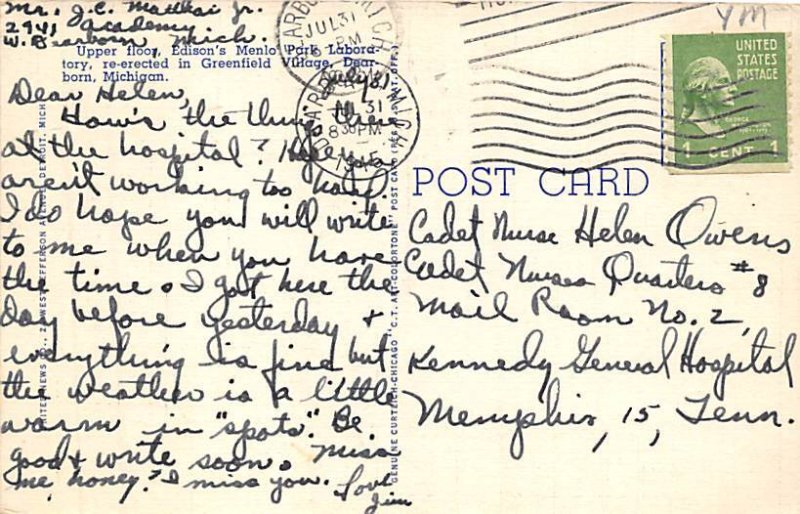 Mr. J.C. Matthai Jr.
2941 Academy
W. Dearborn, Mich.
Upper floor, Edison's Menlo Park Labora-
tory, re-erected in Greenfield Village, Dear-
born, Michigan.
July 31
Dear Helen,
How's the thing there
at the hospital? Hope you
aren't working too hard.
I do hope you will write
to me when you have
the time. I got here the
day before yesterday +
everything is fine but
the weather is a little
warm in "spots". Be
good + write soon. Miss
me, honey? I miss you. Love
Jim
JUL 31
PM
MICH
JUL 31
8 30 PM
1945
GENUINE CURTEICH-CHICAGO "C.T. ART-COLORTONE" POST CARD (REG. U.S. PAT. OFF.)
YM
UNITED
STATES
POSTAGE
1 CENT 1
POST CARD
Cadet Nurse Helen Owens
Cadet Nurses Quarters #8
Mail Room No. 2,
Kennedy General Hospital
Memphis, 15, Tenn.